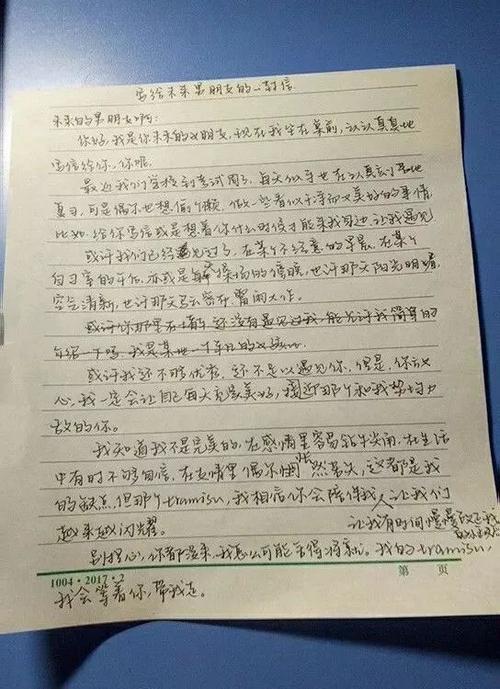 写给未来男朋友的一封信
未来的男朋友啊:
你好,我是你未来的女朋友,现在我坐在桌前,认认真真地
写信给你,你呢。
最近我们学校到考试周了,每天似乎也在认真地
复习,可是偶尔也想偷个懒,做一些看似干净而又美好的事情
比如,给你写信或是想着你什么时候才能来我身边,让我遇见
或许我们已经遇见过了,在某个不经意的早晨,在某个
自习室的午后,亦或是操场的傍晚,也许那天阳光明媚
空气清新,也许那天乌云密布雷雨大作。
或许你那里还没有遇见过我,能允许我简单的
介绍一下吗,我是某地一个车日的女孩
或许我还不够优秀,还不足以遇见你,但是,你放
心,我一定会让自己每天变美好,接近那个和我势均力
敌的你。
我知道我不是完美的,在感情里容易钻牛尖角,在生活
中有时不够自信,在友情里偶尔怅然若失,这都是我
的缺点,但那个tramisu,我相信你会陪伴我,让我们
越来越闪耀。
让我有时间慢慢改正我
别担心,你都没来,我怎么可能舍得将就。我的tramisu,
1004·2017·2 第 页
我会等着你,带我走。